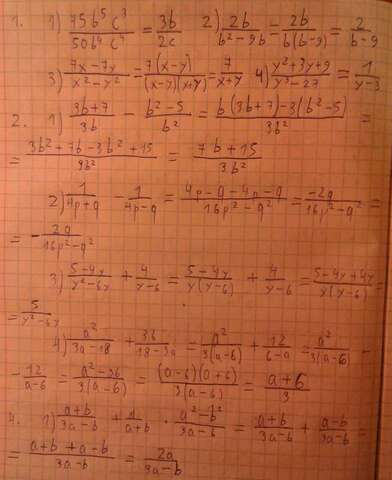 1. 1) 75b⁵c³/50b⁴c⁴ = 3b/2c 2) 2b/(b²-9b) = 2b/b(b-9) = 2/(b-9)
3) (7x-7y)/(x²-y²) = 7(x-y)/(x-y)(x+y) = 7/(x+y) 4) (y²+3y+9)/(y³-27) = 1/(y-3)
2. 1) (3b+7)/3b - (b²-5)/b² = (b(3b+7)-3(b²-5))/3b² =
= (3b²+7b-3b²+15)/9b² = (7b+15)/3b²
2) 1/(4p+q) - 1/(4p-q) = (4p-q-4p-q)/(16p²-q²) = -2q/(16p²-q²) =
= -2q/(16p²-q²)
3) (5-4y)/(y²-6y) + 4/(y-6) = (5-4y)/y(y-6) + 4/(y-6) = (5-4y+4y)/y(y-6) =
= 5/(y²-6y)
4) a²/(3a-18) + 36/(18-3a) = a²/3(a-6) + 12/(6-a) = a²/3(a-6) -
- 12/(a-6) = (a²-36)/3(a-6) = (a-6)(a+6)/3(a-6) = (a+6)/3
4. 1) (a+b)/(3a-b) + 1/(a+b) · (a²-b²)/(3a-b) = (a+b)/(3a-b) + (a-b)/(3a-b) =
= (a+b+a-b)/(3a-b) = 2a/(3a-b)